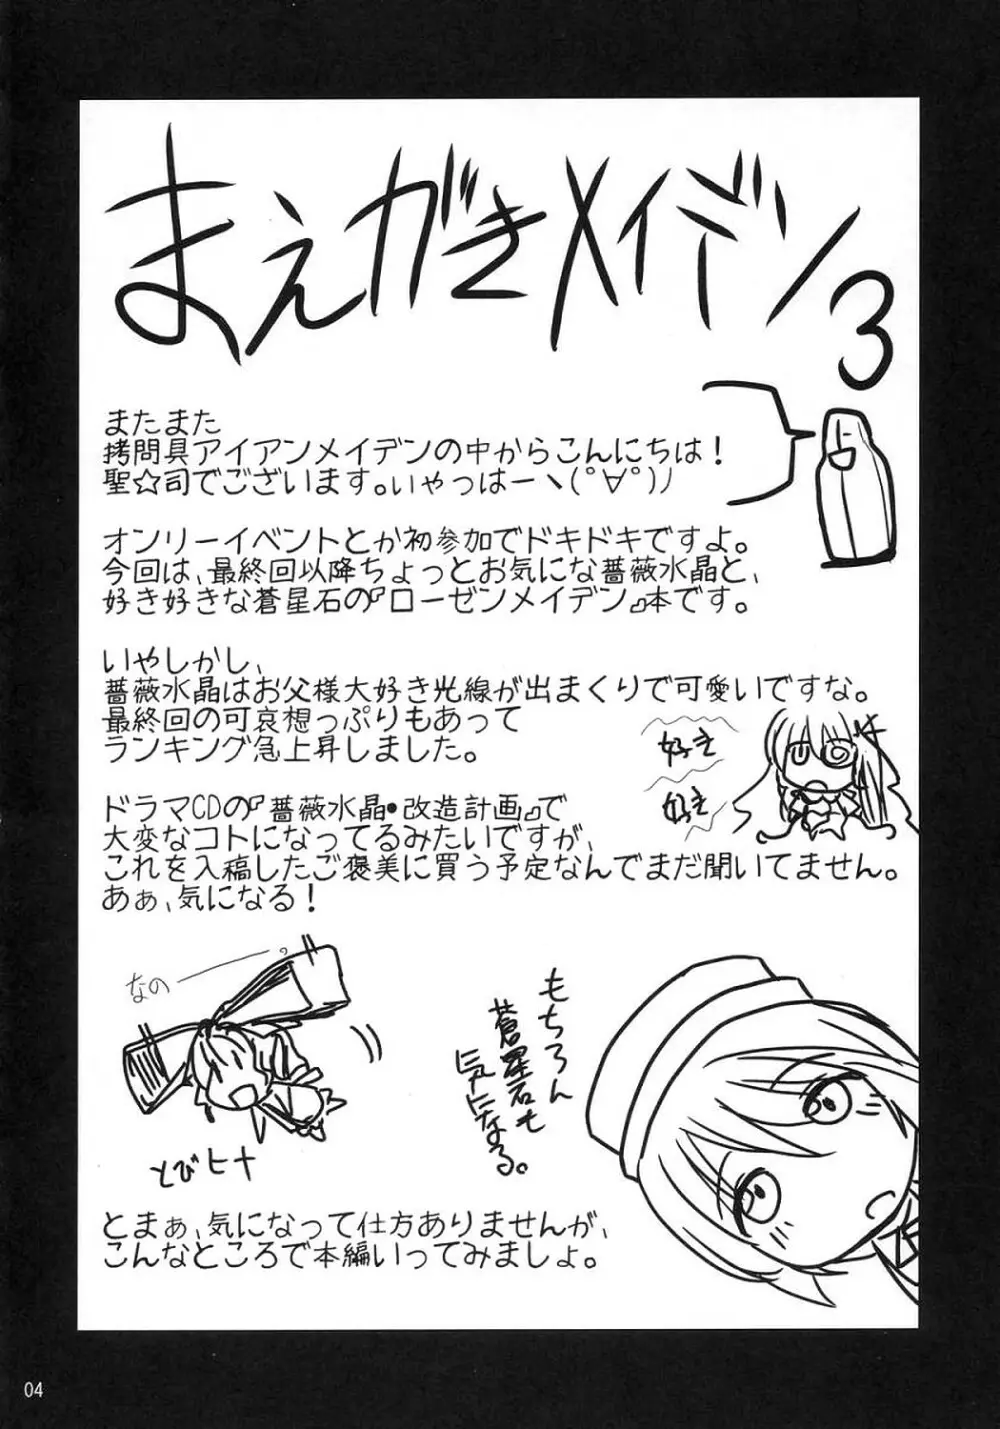 まえがきメイデン3
またまた
拷問具アイアンメイデンの中からこんにちは！
聖☆司でございます。いゃっはーヽ(ﾟ∀ﾟ)ノ
オンリーイベントとか初参加でドキドキですよ。
今回は、最終回以降ちょっとお気にな薔薇水晶と、
好き好きな蒼星石の『ローゼンメイデン』本です。
いやしかし、
薔薇水晶はお父様大好き光線が出まくりで可愛いですな。
最終回の可哀想っぷりもあって
ランキング急上昇しました。
好き
好き
ドラマCDの『薔薇水晶•改造計画』で
大変なコトになってるみたいですが、
これを入稿したご褒美に買う予定なんでまだ聞いてません。
あぁ、気になる！
なのーっ
とびヒナ
もちろん
蒼星石も
気になる。
とまぁ、気になって仕方ありませんが、
こんなところで本編いってみましょ。
04